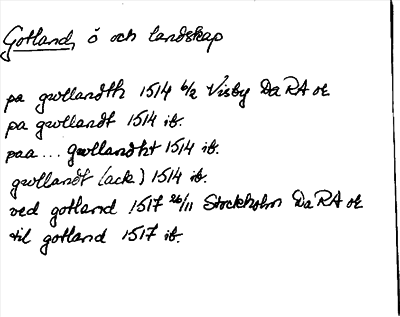 Gotland, ö och landskap
pa gwllandth 1514 6/2 Visby DaRA ok
pa gwllandt 1514 ib.
paa ... gwllandht 1514 ib.
gwllandt (ack) 1514 ib.
ved gotland 1517 26/11 Stockholm DaRA ok
til gotland 1517 ib.